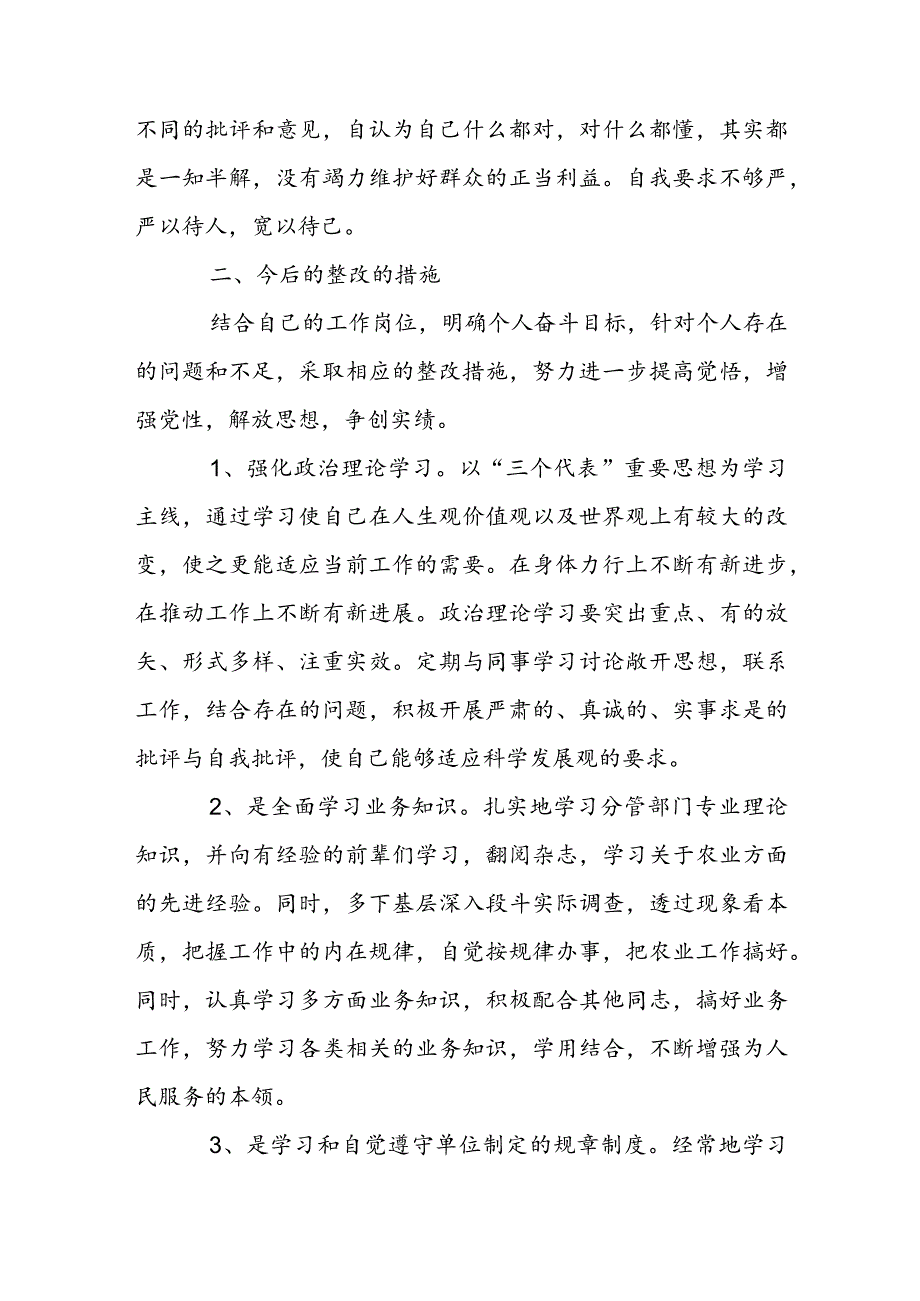 不同的批评和意见，自认为自己什么都对，对什么都懂，其实都
是一知半解，没有竭力维护好群众的正当利益。自我要求不够严，
严以待人，宽以待己。
二、今后的整改的措施
结合自己的工作岗位，明确个人奋斗目标，针对个人存在
的问题和不足，采取相应的整改措施，努力进一步提高觉悟，增
强党性，解放思想，争创实绩。
1、强化政治理论学习。以“三个代表”重要思想为学习
主线，通过学习使自己在人生观价值观以及世界观上有较大的改
变，使之更能适应当前工作的需要。在身体力行上不断有新进步，
在推动工作上不断有新进展。政治理论学习要突出重点、有的放
矢、形式多样、注重实效。定期与同事学习讨论敞开思想，联系
工作，结合存在的问题，积极开展严肃的、真诚的、实事求是的
批评与自我批评，使自己能够适应科学发展观的要求。
2、是全面学习业务知识。扎实地学习分管部门专业理论
知识，并向有经验的前辈们学习，翻阅杂志，学习关于农业方面
的先进经验。同时，多下基层深入段斗实际调查，透过现象看本
质，把握工作中的内在规律，自觉按规律办事，把农业工作搞好。
同时，认真学习多方面业务知识，积极配合其他同志，搞好业务
工作，努力学习各类相关的业务知识，学用结合，不断增强为人
民服务的本领。
3、是学习和自觉遵守单位制定的规章制度。经常地学习